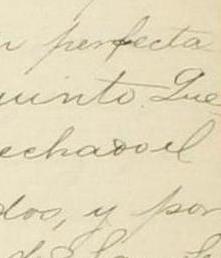 n perfecta
uinto. Que
echado el
dos, y por